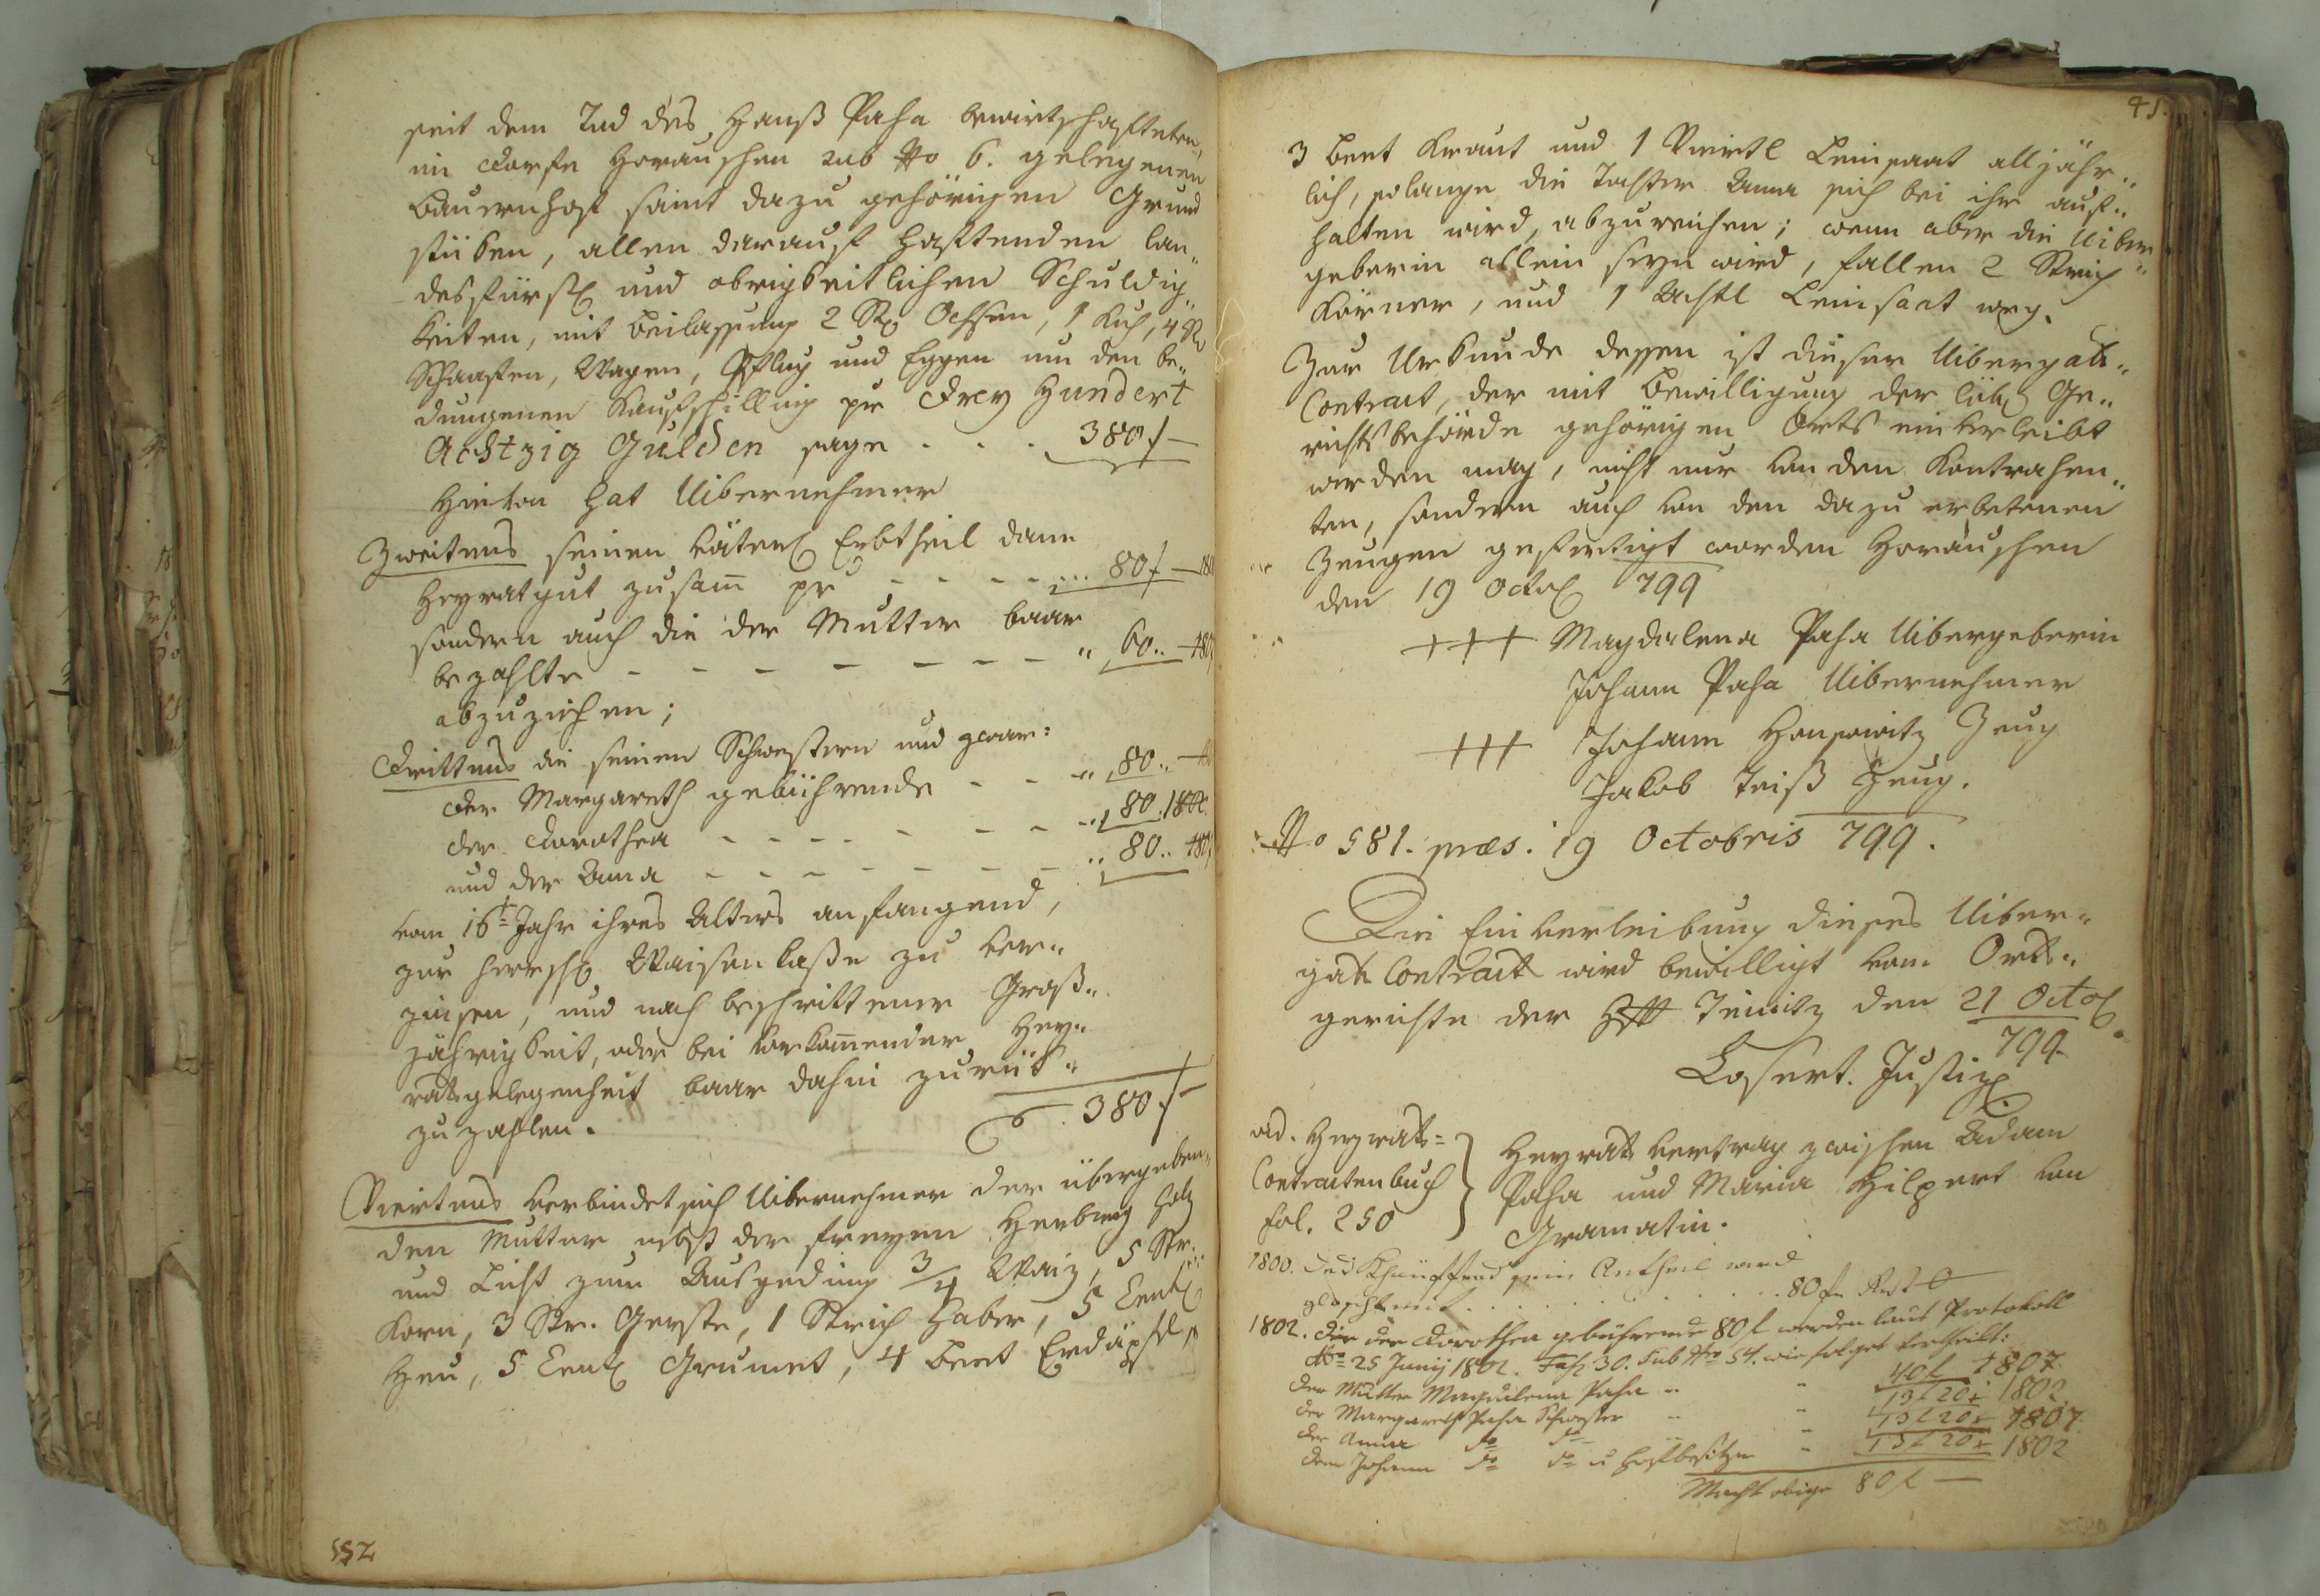 seit dem Tod des Hanß Paha bewirtschafteten,
im Dorfe Horauschen sub No 6. gelegenen
Bauernhof samt dazu gehörigen Grund
stüken, allen darauf haftenden lan„
desfürstl und obrigkeitlichen Schuldig„
keiten, mit Beilassung 2 Stk Ochsen, 1 Kuh, 4 Stk
Schaafen, Wagen, Pflug und Eggen um den be„
dungenen Kaufschilling pr Drey Hundert
Achtzig Gulden sage . . . 380 f —
Hievon hat Uibernehmer
Zweitens seinen väterl Erbtheil dann
Heyratgut zusam̄ pr - - - - - ... 80 f —
sondern auch die der Mutter baar
bezahlte - - - - - - - „ 60 „ —
abzuziehen;
Drittens die seinen Schwestern und zwar:
der Margareth gebührende - - - „ 80 „ —
der Dorothea - - - - - - - - „ 80
und der Anna - - - - - - - - „ 80 „
vom 16t Jahr ihres Alters anfangend,
zur herrschl Waisen kaße zu ver„
zinsen, und nach beschrittener Groß„
jährigkeit, oder bei vorkom̄ender Hey„
ratsgelegenheit baar dahin zurük„
zuzahlen.
380 f —
Viertens verbindet sich Uibernehmer der übergeben„
den Mutter nebst der freyen Herberg Holz
und Licht zum Ausgeding 3/4 Waiz, 5 Str.
Korn, 3 Str. Gerste, 1 Strich Haber, 5 Centl
Heu, 5 Centl Grumet, 4 Beet Erdäpfel,
552
41.
3 Beet Kraut und 1 Viertl Leinsaat alljähr„
lich, solange die Tochter Anna sich bei ihr auf„
halten wird, abzureichen; wenn aber die Uiber„
geberin allein seyn wird, fallen 2 Strich
Körner, und 1 Achtl Leinsaat weg.
Zur Urkunde dessen ist dieser Uibergab„
Contract, der mit Bewilligung der löbl Ge„
richtsbehörde gehörigen Orts einverleibt
werden mag, nicht nur von den Kontrahen„
ten, sondern auch von den dazu erbetenen
Zeugen gefertigt worden Horauschen
den 19 Octol 799
+++ Magdalena Paha Uibergeberin
Johann Paha Uibernehmer
+++ Johann Zeug
Jakob Zeug.
No 581. præs. 19 Octobris 799.
Die Einverleibung dieses Uiber„
gab Contract wird bewilligt vom Orts„
gerichte der Hft den 21 Octol
799.
Losert. Justizl
vid. Heyrats=
Contractenbuch
fol. 250
Heyrats vertrag zwischen Adam
Paha und Maria Hilpert von
Gramatin.
1800. sein Antheil wird
gelöscht mit . . . . . . . . . 80 f Rest O
1802. Die der Dorothea gebührende 80 f werden laut Protokoll
dto 25 Junij 1802. Fasz 30. sub Nro 54. wie folget vertheilt:
der Mutter Magdalena Paha „ „ 40 f 1807.
der Margareth Paha Schwester „ „ 13 f 20 x 1802
der Anna dto dto „ 13 f 20 x 1807
dem Johann dto dto u Hofbesitzer „ 13 f 20 x 1802
Macht obige 80 f —